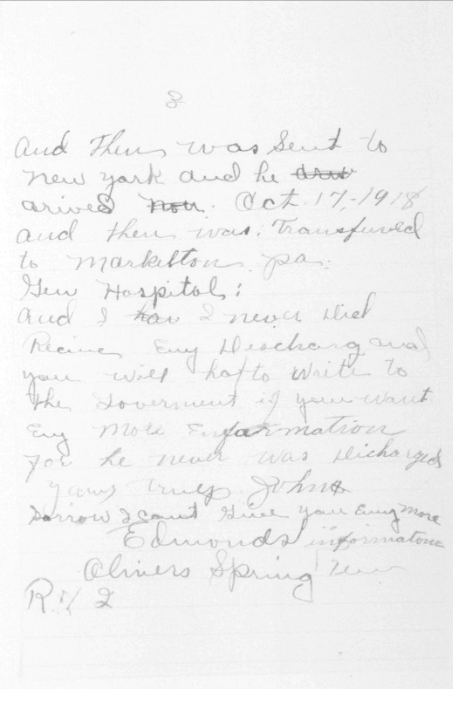 8
And Then was Sent to
new york and he
arived Oct 17,-1918
and then was. Transfured
to Markelton pa.
Gen Hospitol:
And I never did
Recive Eny Discharg and
you will hafto Write to
the Goverment if you want
Eny More Enformation
for he never was Dicharged
yours truly John
Sorrow I cant Give you Eny More
Edmonds informatone
Olivers Spring Tenn
R # 2